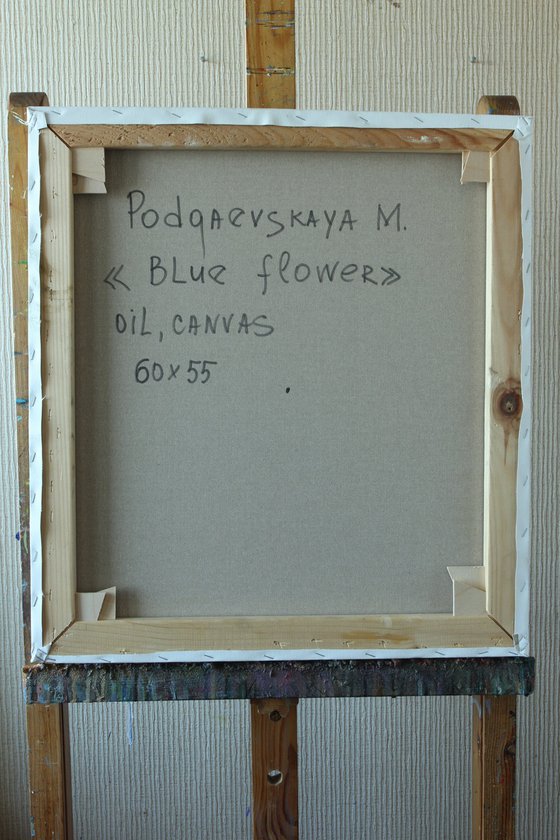 Podgaevskaya M.
« Blue flower»
OiL, CANVAS
60x55